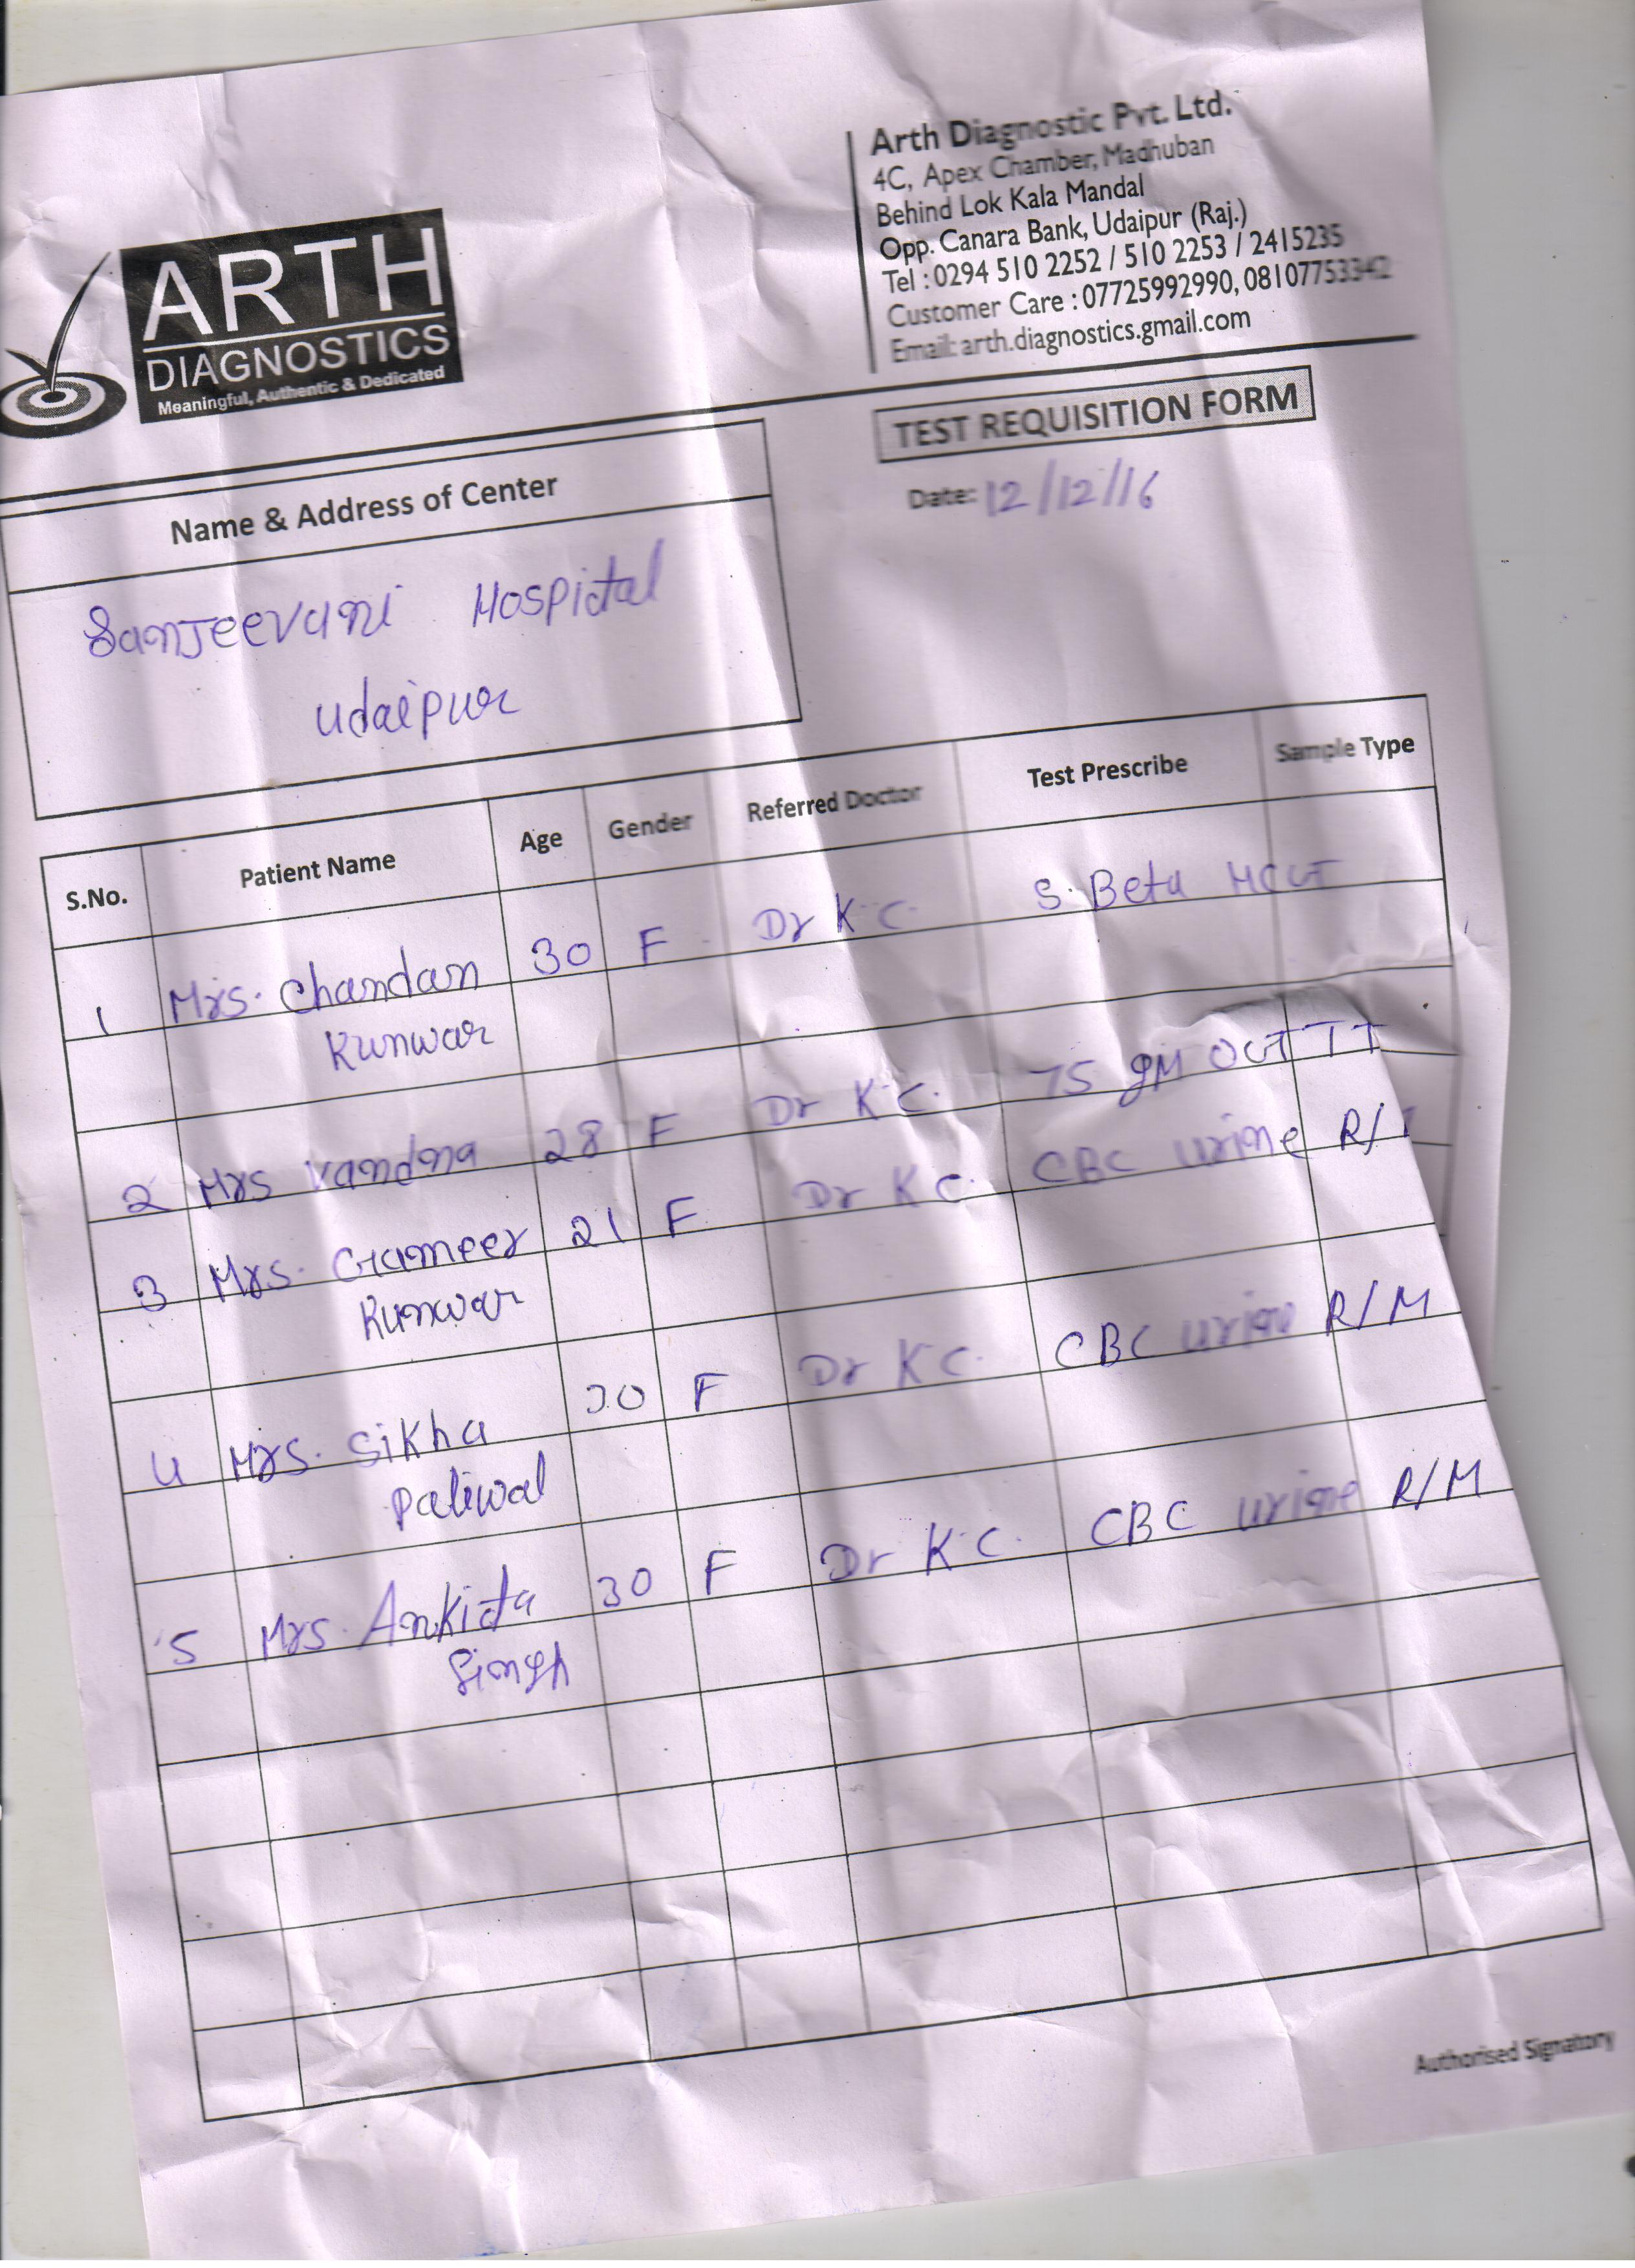 ARTH
DIAGNOSTICS
Meaningful, Authentic & Dedicated
Arth Diagnostic Pvt. Ltd.
4C, Apex Chamber, Madhuban
Behind Lok Kala Mandal
Opp. Canara Bank, Udaipur (Raj.)
Tel : 0294 510 2252 / 510 2253 / 2415235
Customer Care : 07725992990, 08107753342
Email: arth.diagnostics.gmail.com
TEST REQUISITION FORM
Date: 12/12/16
Name & Address of Center
Sanjeevani Hospital
Udaipur
S.No. Patient Name Age Gender Referred Doctor Test Prescribe Sample Type
1 Mrs. Chandan 30 F Dr K.C. S. Beta HCG
Kunwar
2 Mrs Vandna 28 F Dr K.C. 75 gm
3 Mrs. Gameer 21 F Dr K.C. CBC urine
Kunwar
4 Mrs. Sikha 30 F Dr K.C. CBC urine R/M
Paliwal
5 Mrs. Ankita 30 F Dr K.C. CBC urine R/M
Singh
Authorised Signatory